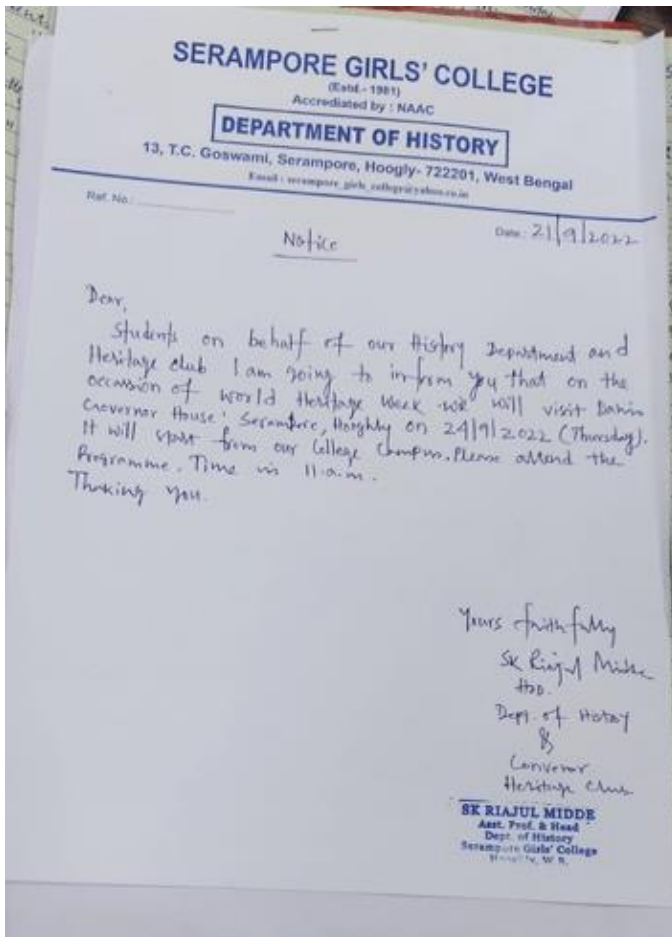 SERAMPORE GIRLS' COLLEGE
(Estd.- 1981)
Accrediated by : NAAC
DEPARTMENT OF HISTORY
13, T.C. Goswami, Serampore, Hoogly- 722201, West Bengal
Email : serampore_girls_college@yahoo.co.in
Ref. No.:
Date : 21/9/2022
Notice
Dear,
Students on behalf of our History Department and
Heritage club I am going to infrom you that on the
occassion of world Heritage week we will visit Danis
Governor House' Serampore, Hooghly on 24/9/2022 (Thursday).
It will start from our College Campus. Please attend the
Programme. Time is 11 a.m.
Thaking you.
Yours faithfully
SK Riajul Midde
HOD.
Dept. of History
&
Convenor
Heritage Club
SK RIAJUL MIDDE
Asst. Prof. & Head
Dept. of History
Serampore Girls' College
W.B.